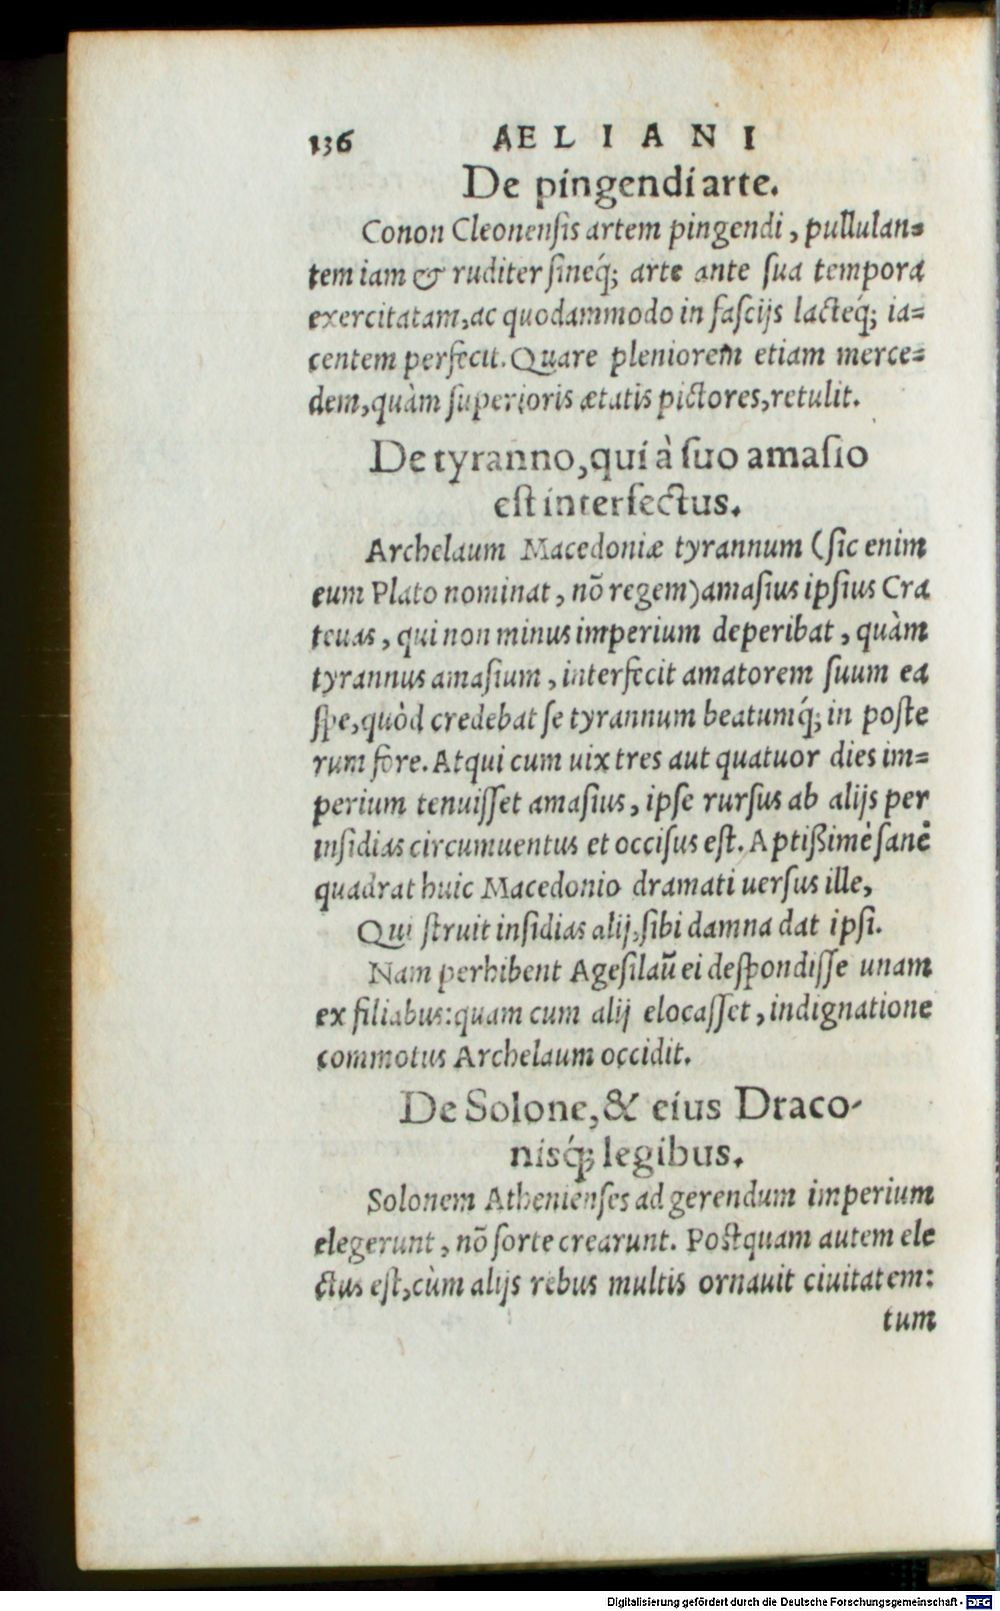 136 AELIANI
De pingendi arte.
Conon Cleonensis artem pingendi, pullulan=
tem iam & ruditer sineq́; arte ante sua tempora
exercitatam, ac quodammodo in fascijs lacteq́; ia=
centem perfecit. Quare pleniorem etiam merce=
dem, quàm superioris ætatis pictores, retulit.
De tyranno, qui à suo amasio
est interfectus.
Archelaum Macedoniæ tyrannum (sic enim
eum Plato nominat, nõ regem) amasius ipsius Cra
teuas, qui non minus imperium deperibat, quàm
tyrannus amasium, interfecit amatorem suum ea
spe, quòd credebat se tyrannum beatumq́; in poste
rum fore. Atqui cum uix tres aut quatuor dies im=
perium tenuisset amasius, ipse rursus ab alijs per
insidias circumuentus et occisus est. Aptißimè sanè
quadrat huic Macedonio dramati uersus ille,
Qui struit insidias alij, sibi damna dat ipsi.
Nam perhibent Agesilaũ ei despondisse unam
ex filiabus: quam cum alij elocasset, indignatione
commotus Archelaum occidit.
De Solone, & eius Draco-
nisq́; legibus.
Solonem Athenienses ad gerendum imperium
elegerunt, nõ sorte crearunt. Postquam autem ele
ctus est, cùm alijs rebus multis ornauit ciuitatem:
tum
Digitalisierung gefördert durch die Deutsche Forschungsgemeinschaft - DFG